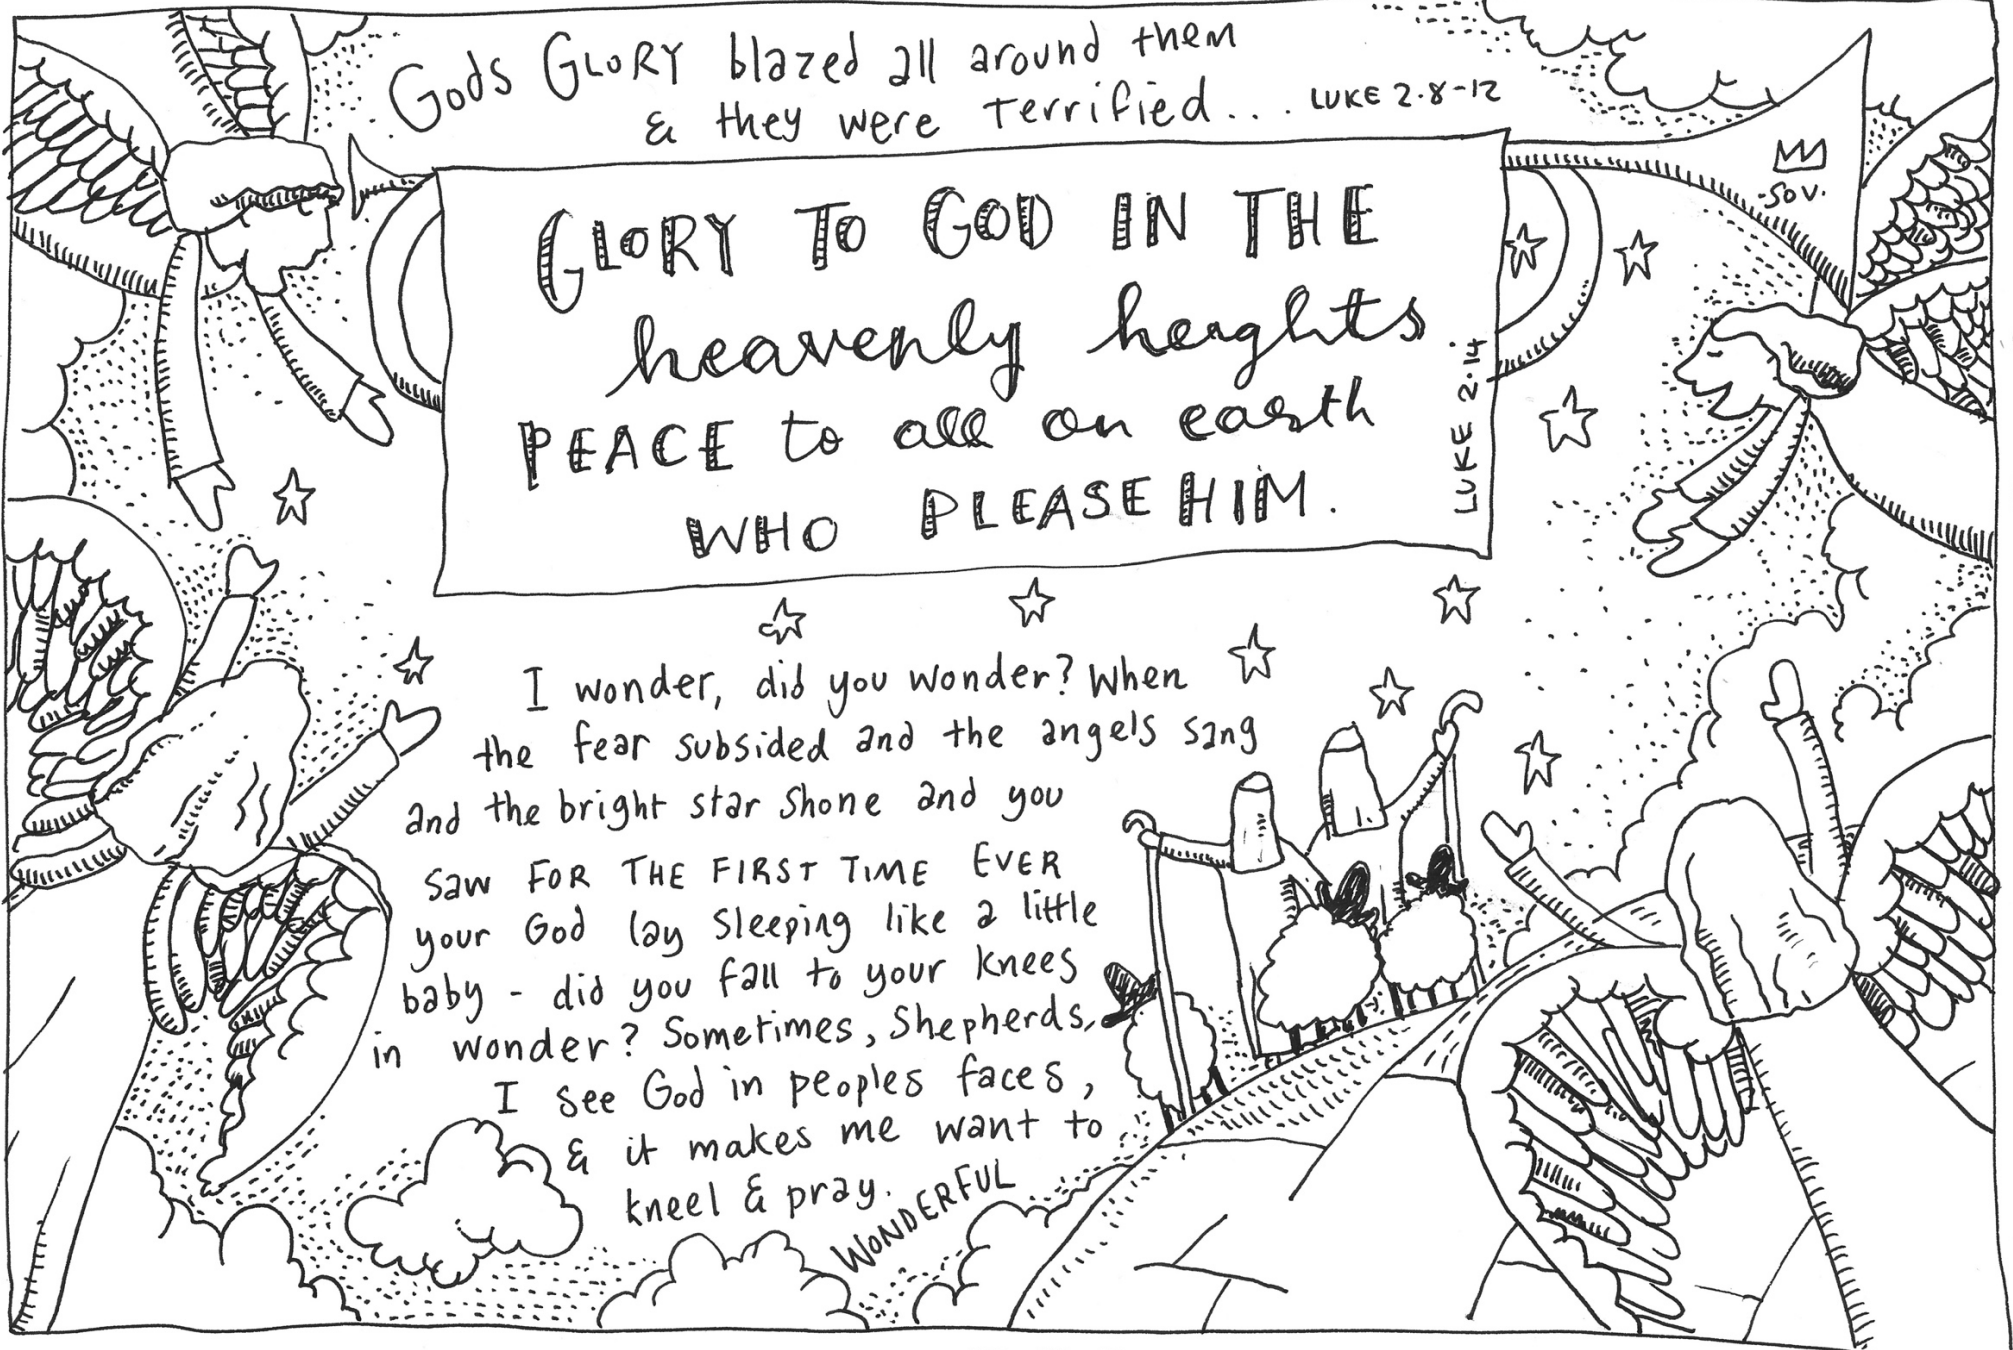 Gods GLORY blazed all around them
& they were terrified... LUKE 2.8-12
SOV.
GLORY TO GOD IN THE
heavenly heights
PEACE to all on earth
WHO PLEASE HIM.
LUKE 2.14
I wonder, did you wonder? When
the fear subsided and the angels sang
and the bright star shone and you
saw FOR THE FIRST TIME EVER
your God lay sleeping like a little
baby - did you fall to your knees
in wonder? Sometimes, Shepherds,
I see God in peoples faces,
& it makes me want to
kneel & pray.
WONDERFUL